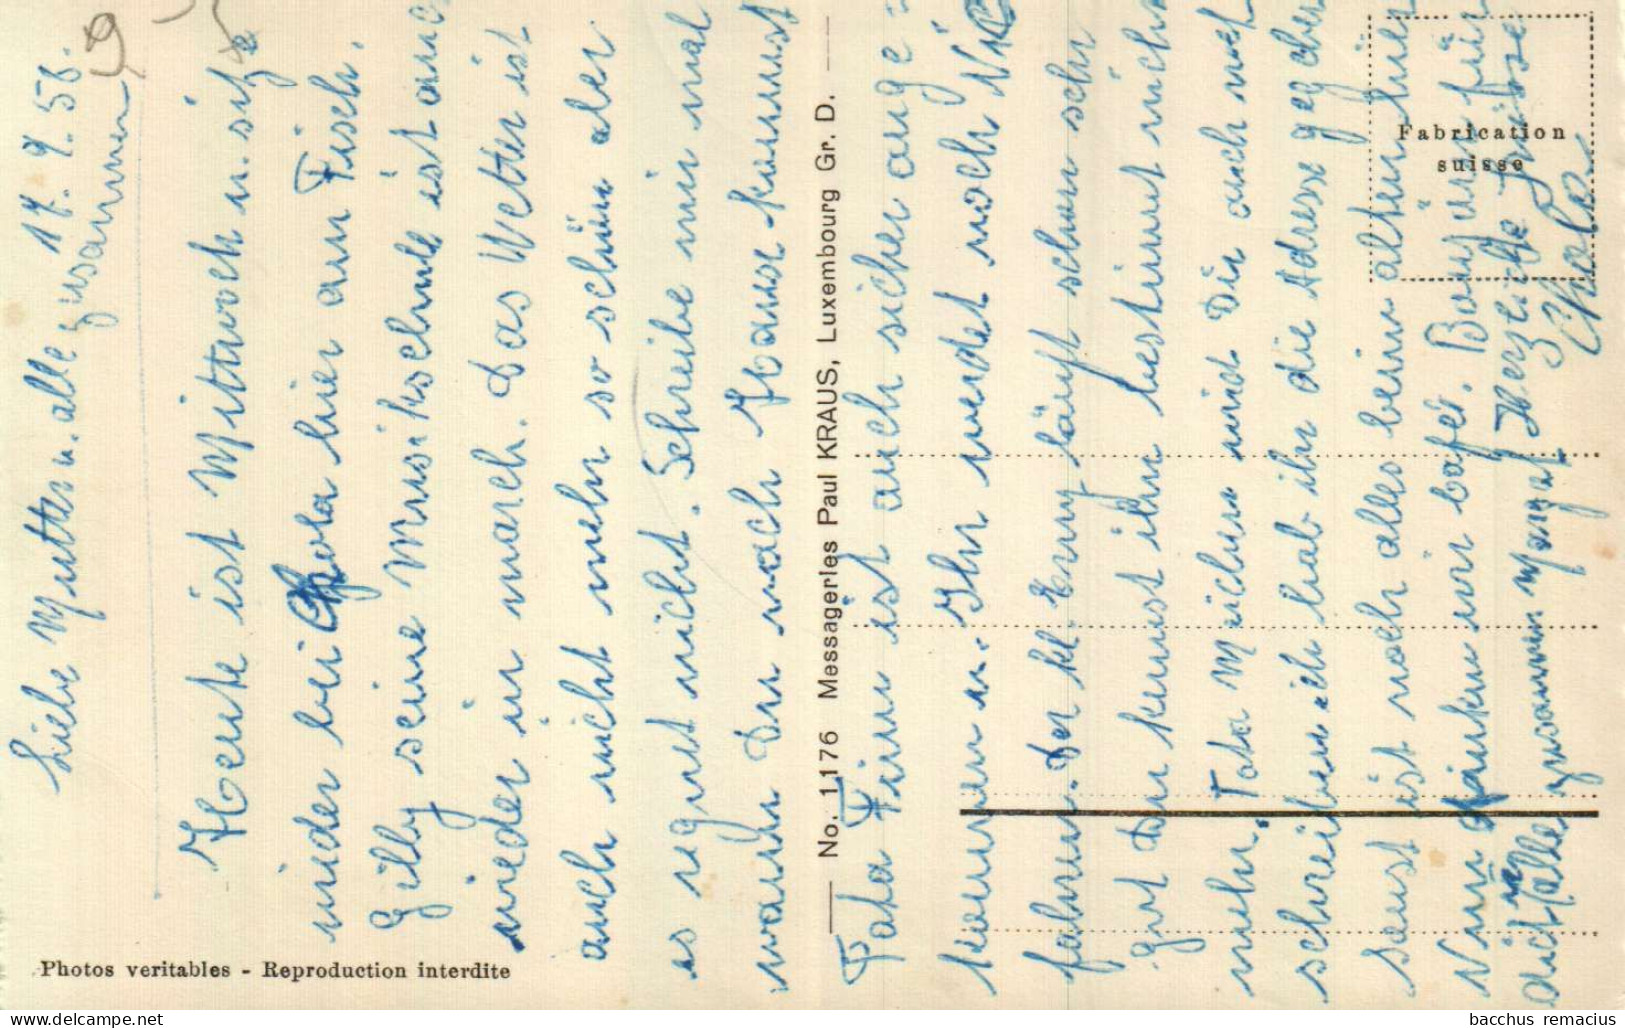 17. 9. 58.
Liebe Mutter u. alle zusammen
Heute ist Mitwoch u. sitze
wieder bei Chola hier am Tisch.
Gilly seine Musikschule ist auch
wieder in march. Das Wetter ist
auch nicht mehr so schön aber
es regnet nicht. Schreibe mir mal
wann Du nach Hause kommst
Tata Finn ist auch sicher ange =
kommen u. Ihr werdet noch Vic
fahren. Der kl. Erny läuft schon sehr
gut Du kennst ihn bestimmt nicht
mehr. Tata Michen wird Dir auch noch
schreiben ich hab ihr die Adresse gegeben
sonst ist noch alles beim alten hier
Nun trinken wir Café. Bonjour für
dich u. alle zusammen Marga Herzliche Grüsse
Chola
No. 1176 Messageries Paul KRAUS, Luxembourg Gr. D.
Fabrication
suisse
Photos veritables - Reproduction interdite
delcampe.net
bacchus remacius